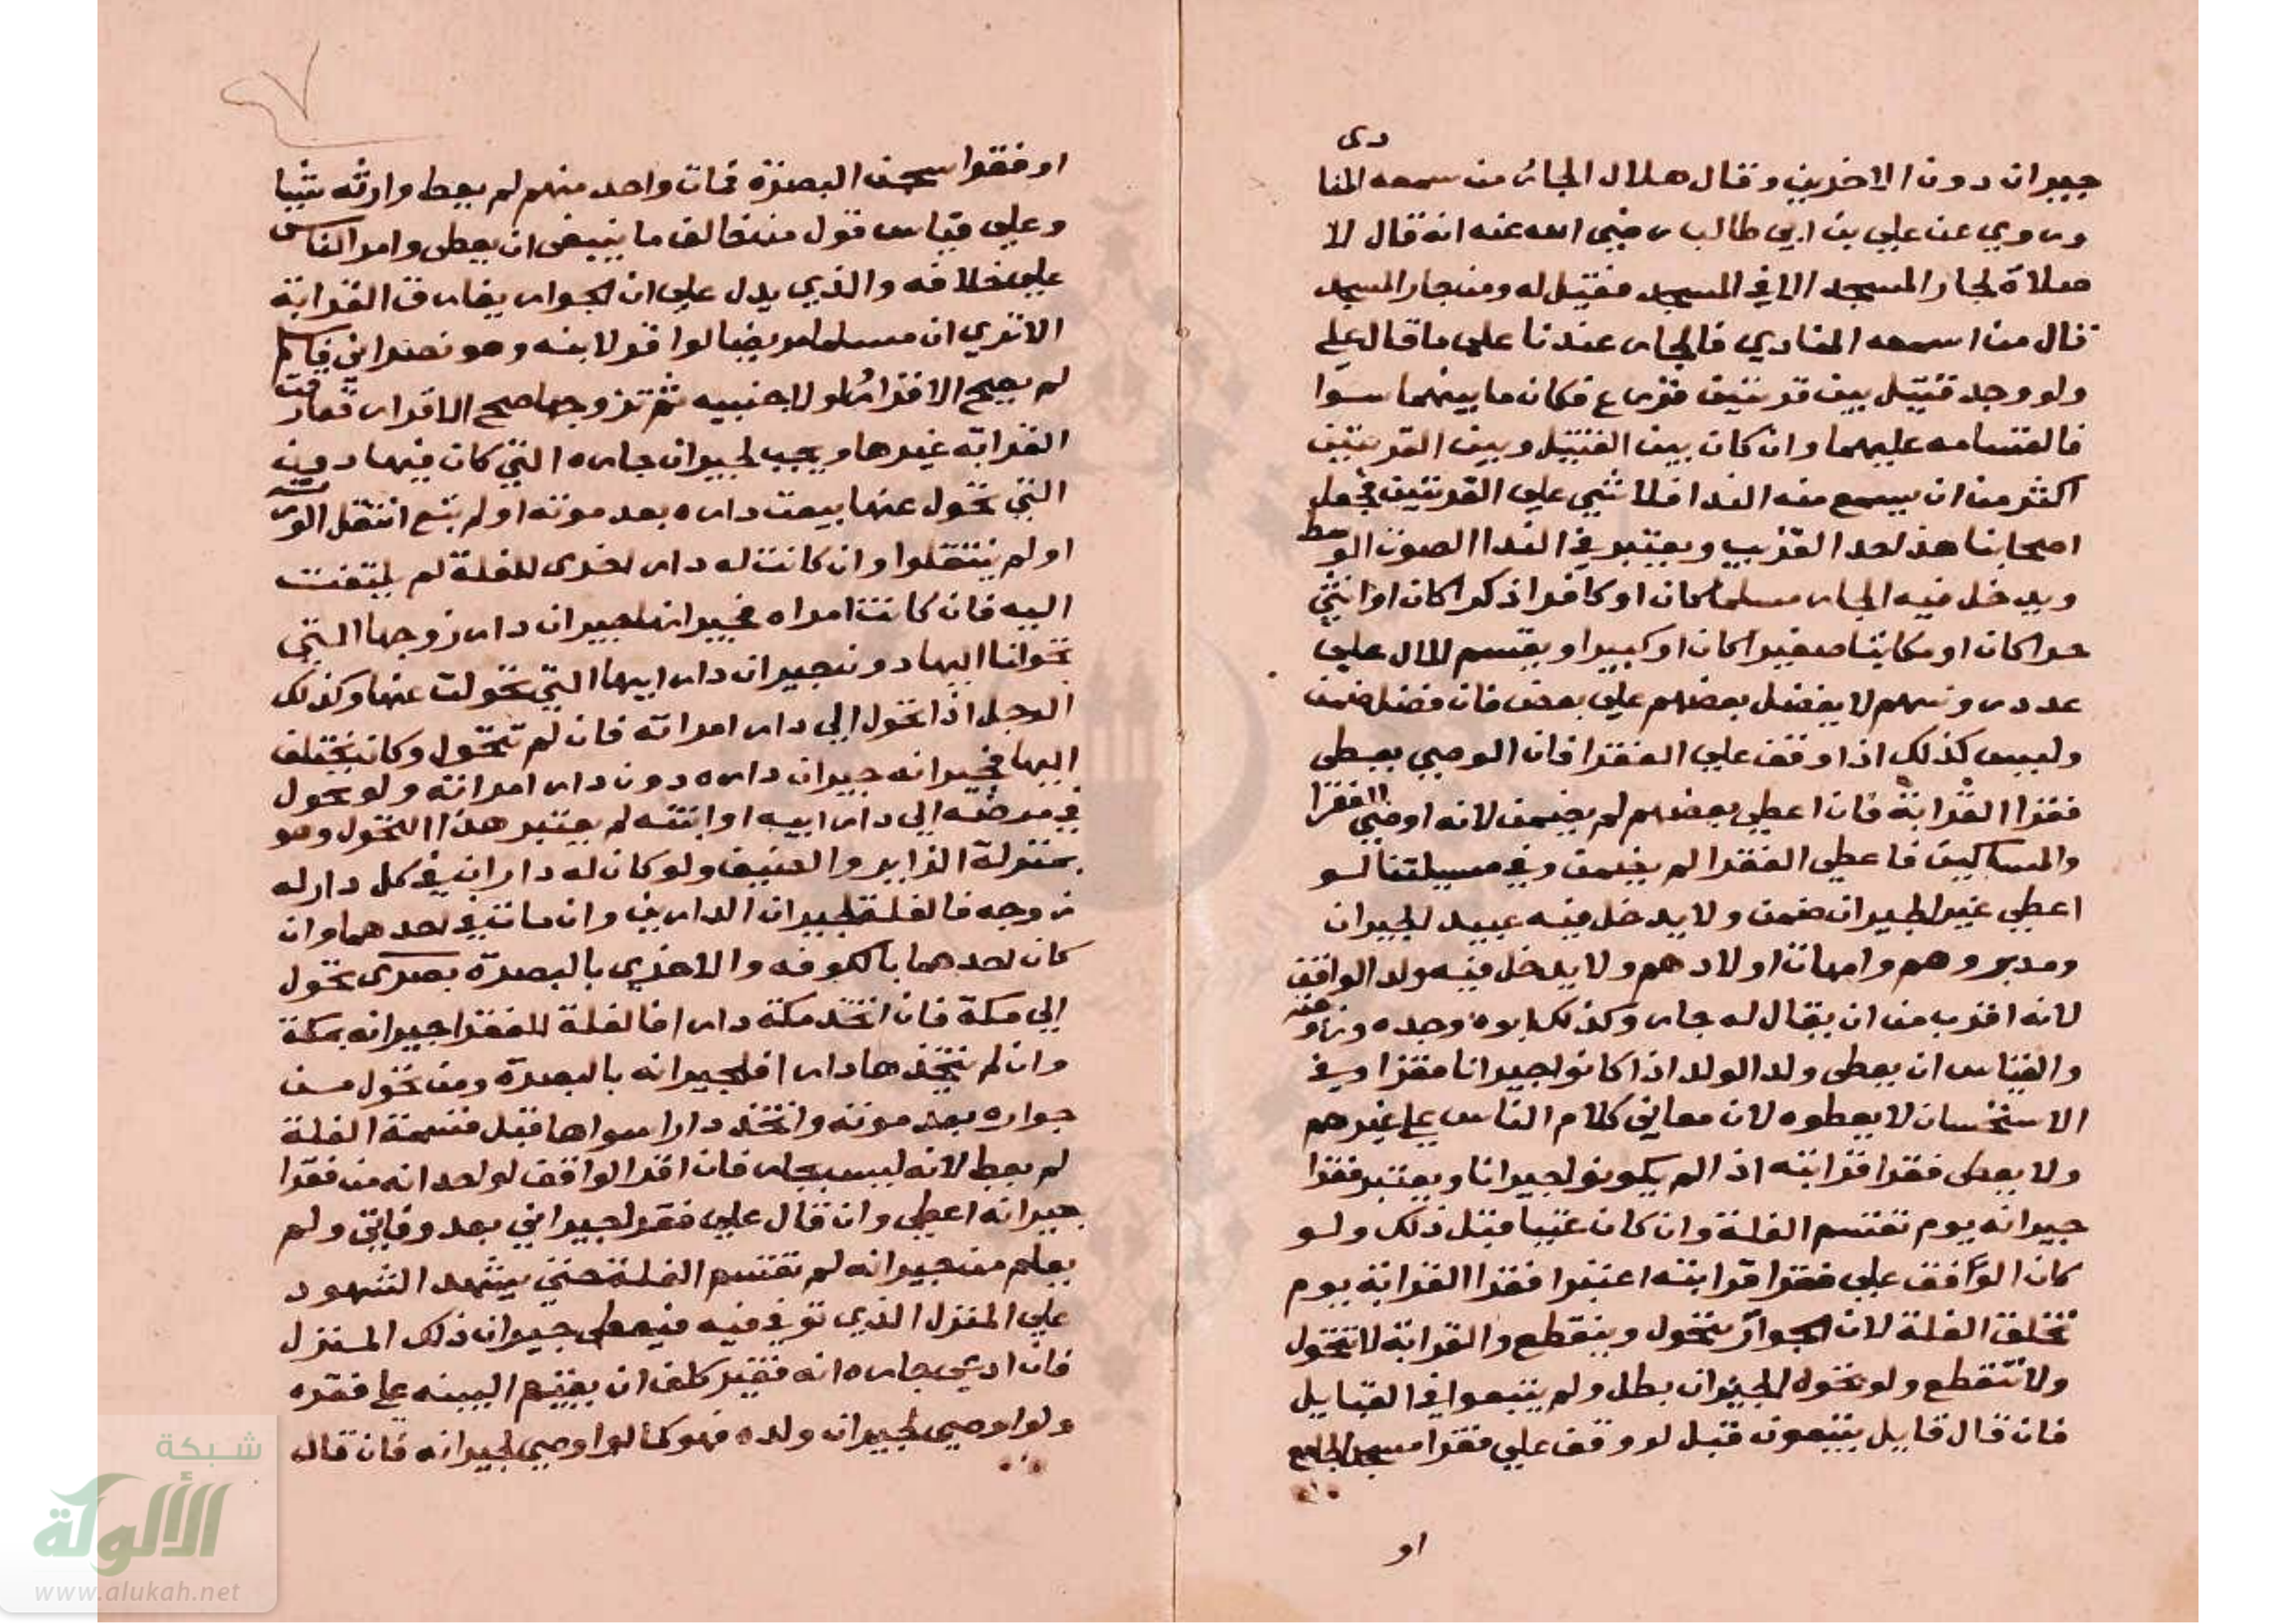 جيران دون الاخرين وقال هلال الجار من سمعه المنا
دى
وروي عن علي بن ابي طالب رضي الله عنه انه قال لا
صلاة لجار المسجد الا في المسجد فقيل له ومن جار المسجد
قال من اسمعه المنادي فالجار عندنا على ما قال علي
ولو وجد قتيل بين قريتين فزرع فكان ما بينهما سوا
فالقسامه عليهما وان كان بين القتيل وبين القريتين
اكثر من ان يسمع منه الندا فلا شي علي القريتين فجعل
اصحابنا هذا حد القريب ويعتبر في الندا الصوت الوسط
ويدخل فيه الجار مسلما كان او كافرا ذكرا كان او انثي
حرا كان او مكاتبا صغيرا كان او كبيرا ويقسم المال علي
عدد روسهم لا يفضل بعضهم علي بعض فان فضل ضمن
وليس كذلك اذا وقف علي الفقرا فان الوصي يعطي
فقرا القرابة فان اعطي بعضهم لم يضمن لانه اوصي للفقرا
والمساكين فاعطي الفقرا لم يضمن وفي مسيلتنا لو
اعطي غير الجيران ضمن ولا يدخل فيه عبيد الجيران
ومدبروهم وامهات اولادهم ولا يدخل فيه ولد الواقف
لانه اقرب من ان يقال له جار وكذلك ابوه وجده وزوجته
والقياس ان يعطى ولد الولد اذا كانوا جيرانا فقرا وفي
الاستحسان لا يعطوه لان معاني كلام الناس علي غيرهم
ولا يعطى فقرا قرابته اذا لم يكونوا جيرانا ويعتبر فقرا
جيرانه يوم تقسم الغلة وان كان غنيا قبل ذلك ولو
كان الوقف علي فقرا قرابته اعتبرا فقرا القرابة يوم
تخلق الغلة لان الجوار يتحول وينقطع والقرابة لا تتحول
ولا تنقطع ولو تحول الجيران بطل ولم يتبعوا في القبايل
فان قال قايل يتبعون قبل لو وقف علي فقرا مسجد الجامع
او
او فقرا سجن البصرة فمات واحد منهم لم يعط وارثه شيا
وعلي قياس قول من خالف ما ينبغي ان يعطى وامر الناس
علي خلافه والذي يدل علي ان الجوار يفارق القرابة
الا تري ان مسلما مريضا لو اقر لابنه وهو نصراني فاسلم
لم يصح الاقرار ولو لاجنبيه ثم تزوجها صح الاقرار فصارت
القرابه غيرها ويجب لجيران جاره التي كان فيها دون
التي تحول عنها بيعت داره بعد موته او لم تبع انتقل الورثة
او لم ينتقلوا وان كانت له دار اخرى للغلة لم يلتفت
اليه فان كانت امراه فجيرانها جيران دار زوجها التي
تحولت اليها دون جيران دار ابيها التي تحولت عنها وكذلك
الرجل اذا تحول الي دار امراته فان لم تتحول وكان يختلف
اليها فجيرانه جيران داره دون دار امراته ولو تحول
في مرضه الي دار ابيه او ابنته لم يعتبر هذا التحول وهو
بمنزلة الزاير والضيف ولو كان له داران في كل دار له
زوجه فالغلة لجيران الدارين وان مات في احدهما وان
كان احدهما بالكوفه والاخري بالبصرة بصرى تحول
الي مكة فان اتخذ مكة دارا فالغلة للفقرا جيرانه بمكة
وان لم يتخذها دارا فلجيرانه بالبصرة ومن تحول من
جواره بعد موته واتخذ دارا سواها قبل قسمة الغلة
لم يعط لانه ليس بجار فان اقر الواقف لواحد انه من فقرا
جيرانه اعطي وان قال علي فقرا جيراني بعد وفاتي ولم
يعلم من جيرانه لم تقسم الغلة حتي يشهد الشهود
علي المنزل الذي توفي فيه فيعطى جيران ذلك المنزل
فان ادعى جاره انه فقير كلف ان يقيم البينه علي فقره
ولو اوصي لجيران ولده فهو كما لو اوصي لجيرانه فان قال
شبكة
الألوكة
www.alukah.net